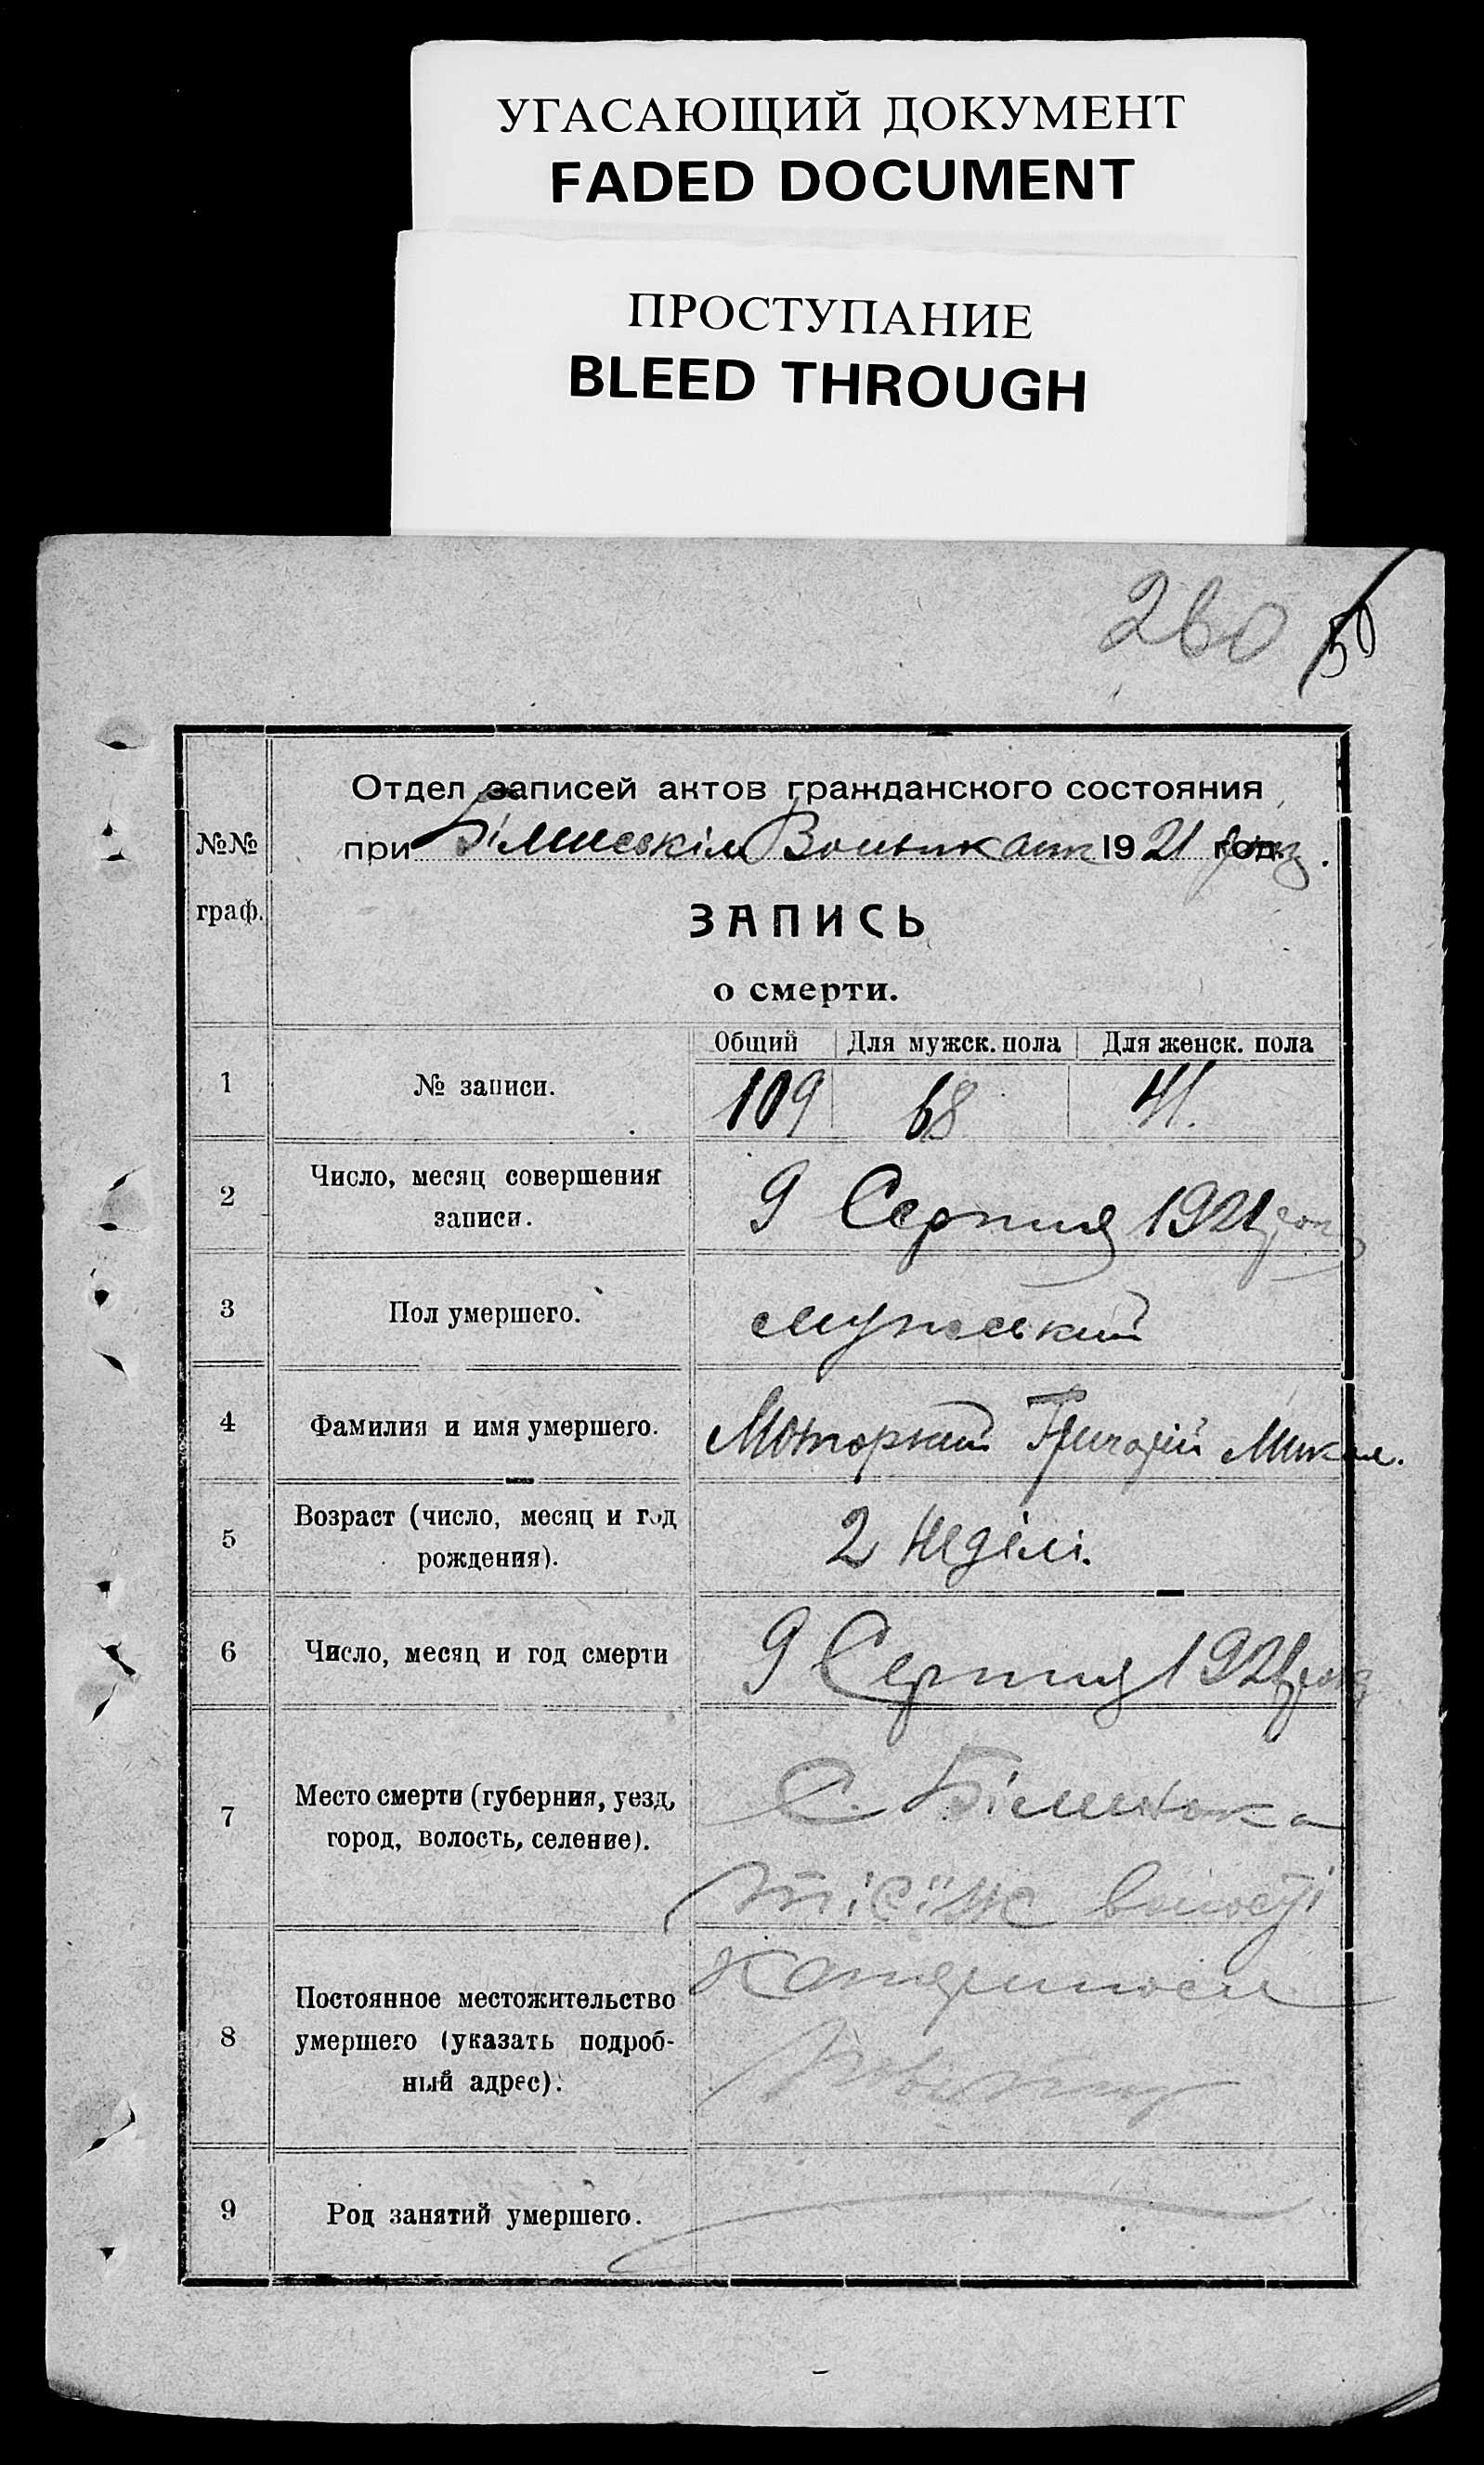 УГАСАЮЩИЙ ДОКУМЕНТ
FADED DOCUMENT
ПРОСТУПАНИЕ
BLEED THROUGH
260 50
Отдел записей актов гражданского состояния
№№
при 1921 год. року.
граф.
ЗАПИСЬ
о смерти.
Общий Для мужск. пола Для женск. пола
1 № записи. 109 68 41.
2 Число, месяц совершения
записи. 9 Серпня 1921 року
3 Пол умершего. мужський
4 Фамилия и имя умершего. Моторний Григорій Микол.
5 Возраст (число, месяц и год
рождения). 2 неділі.
6 Число, месяц и год смерти 9 Серпня 1921 року
7 Место смерти (губерния, уезд,
город, волость, селение).
С.
волості
8 Постоянное местожительство
умершего (указать подроб-
ный адрес).
9 Род занятий умершего.